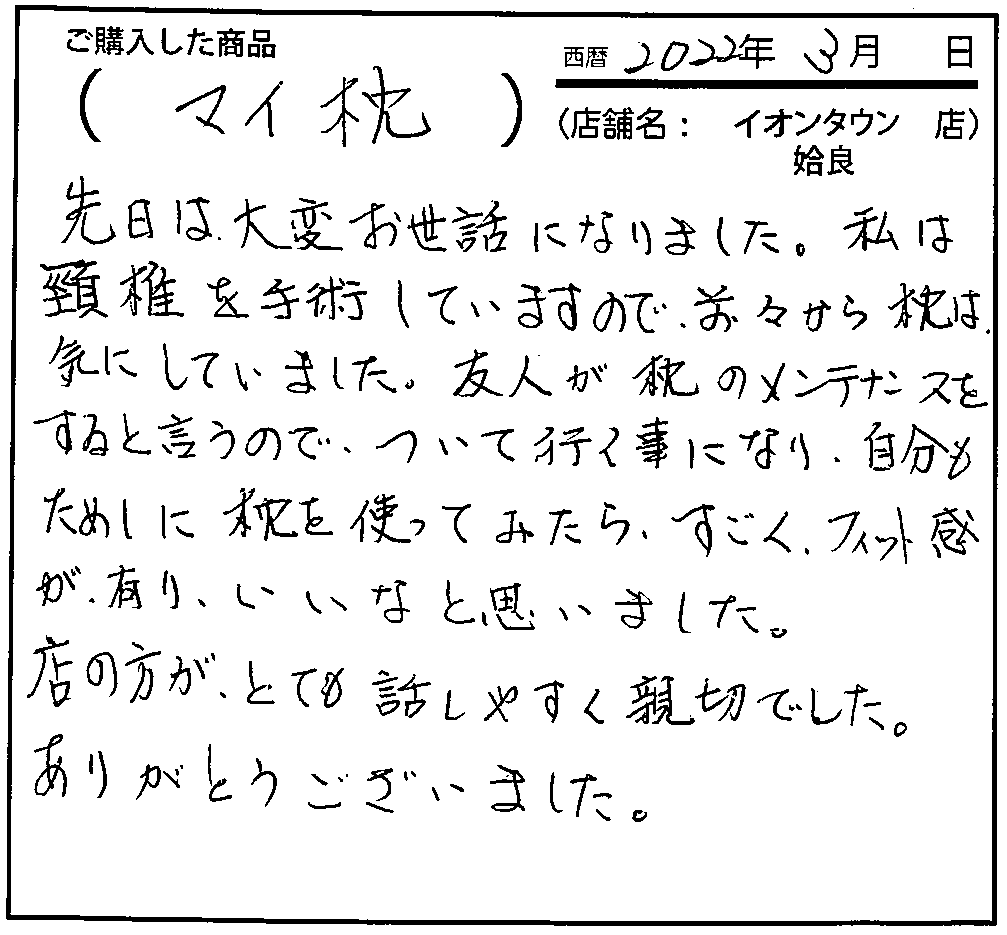 ご購入した商品
西暦 2022年 3月 日
( マイ枕 )
(店舗名： イオンタウン 店)
姶良
先日は、大変お世話になりました。私は
頸椎を手術していますので、前々から枕は、
気にしていました。友人が枕のメンテナンスを
すると言うので、ついて行く事になり、自分も
ためしに枕を使ってみたら、すごく、フィット感
が、有り、いいなと思いました。
店の方が、とても話しやすく親切でした。
ありがとうございました。